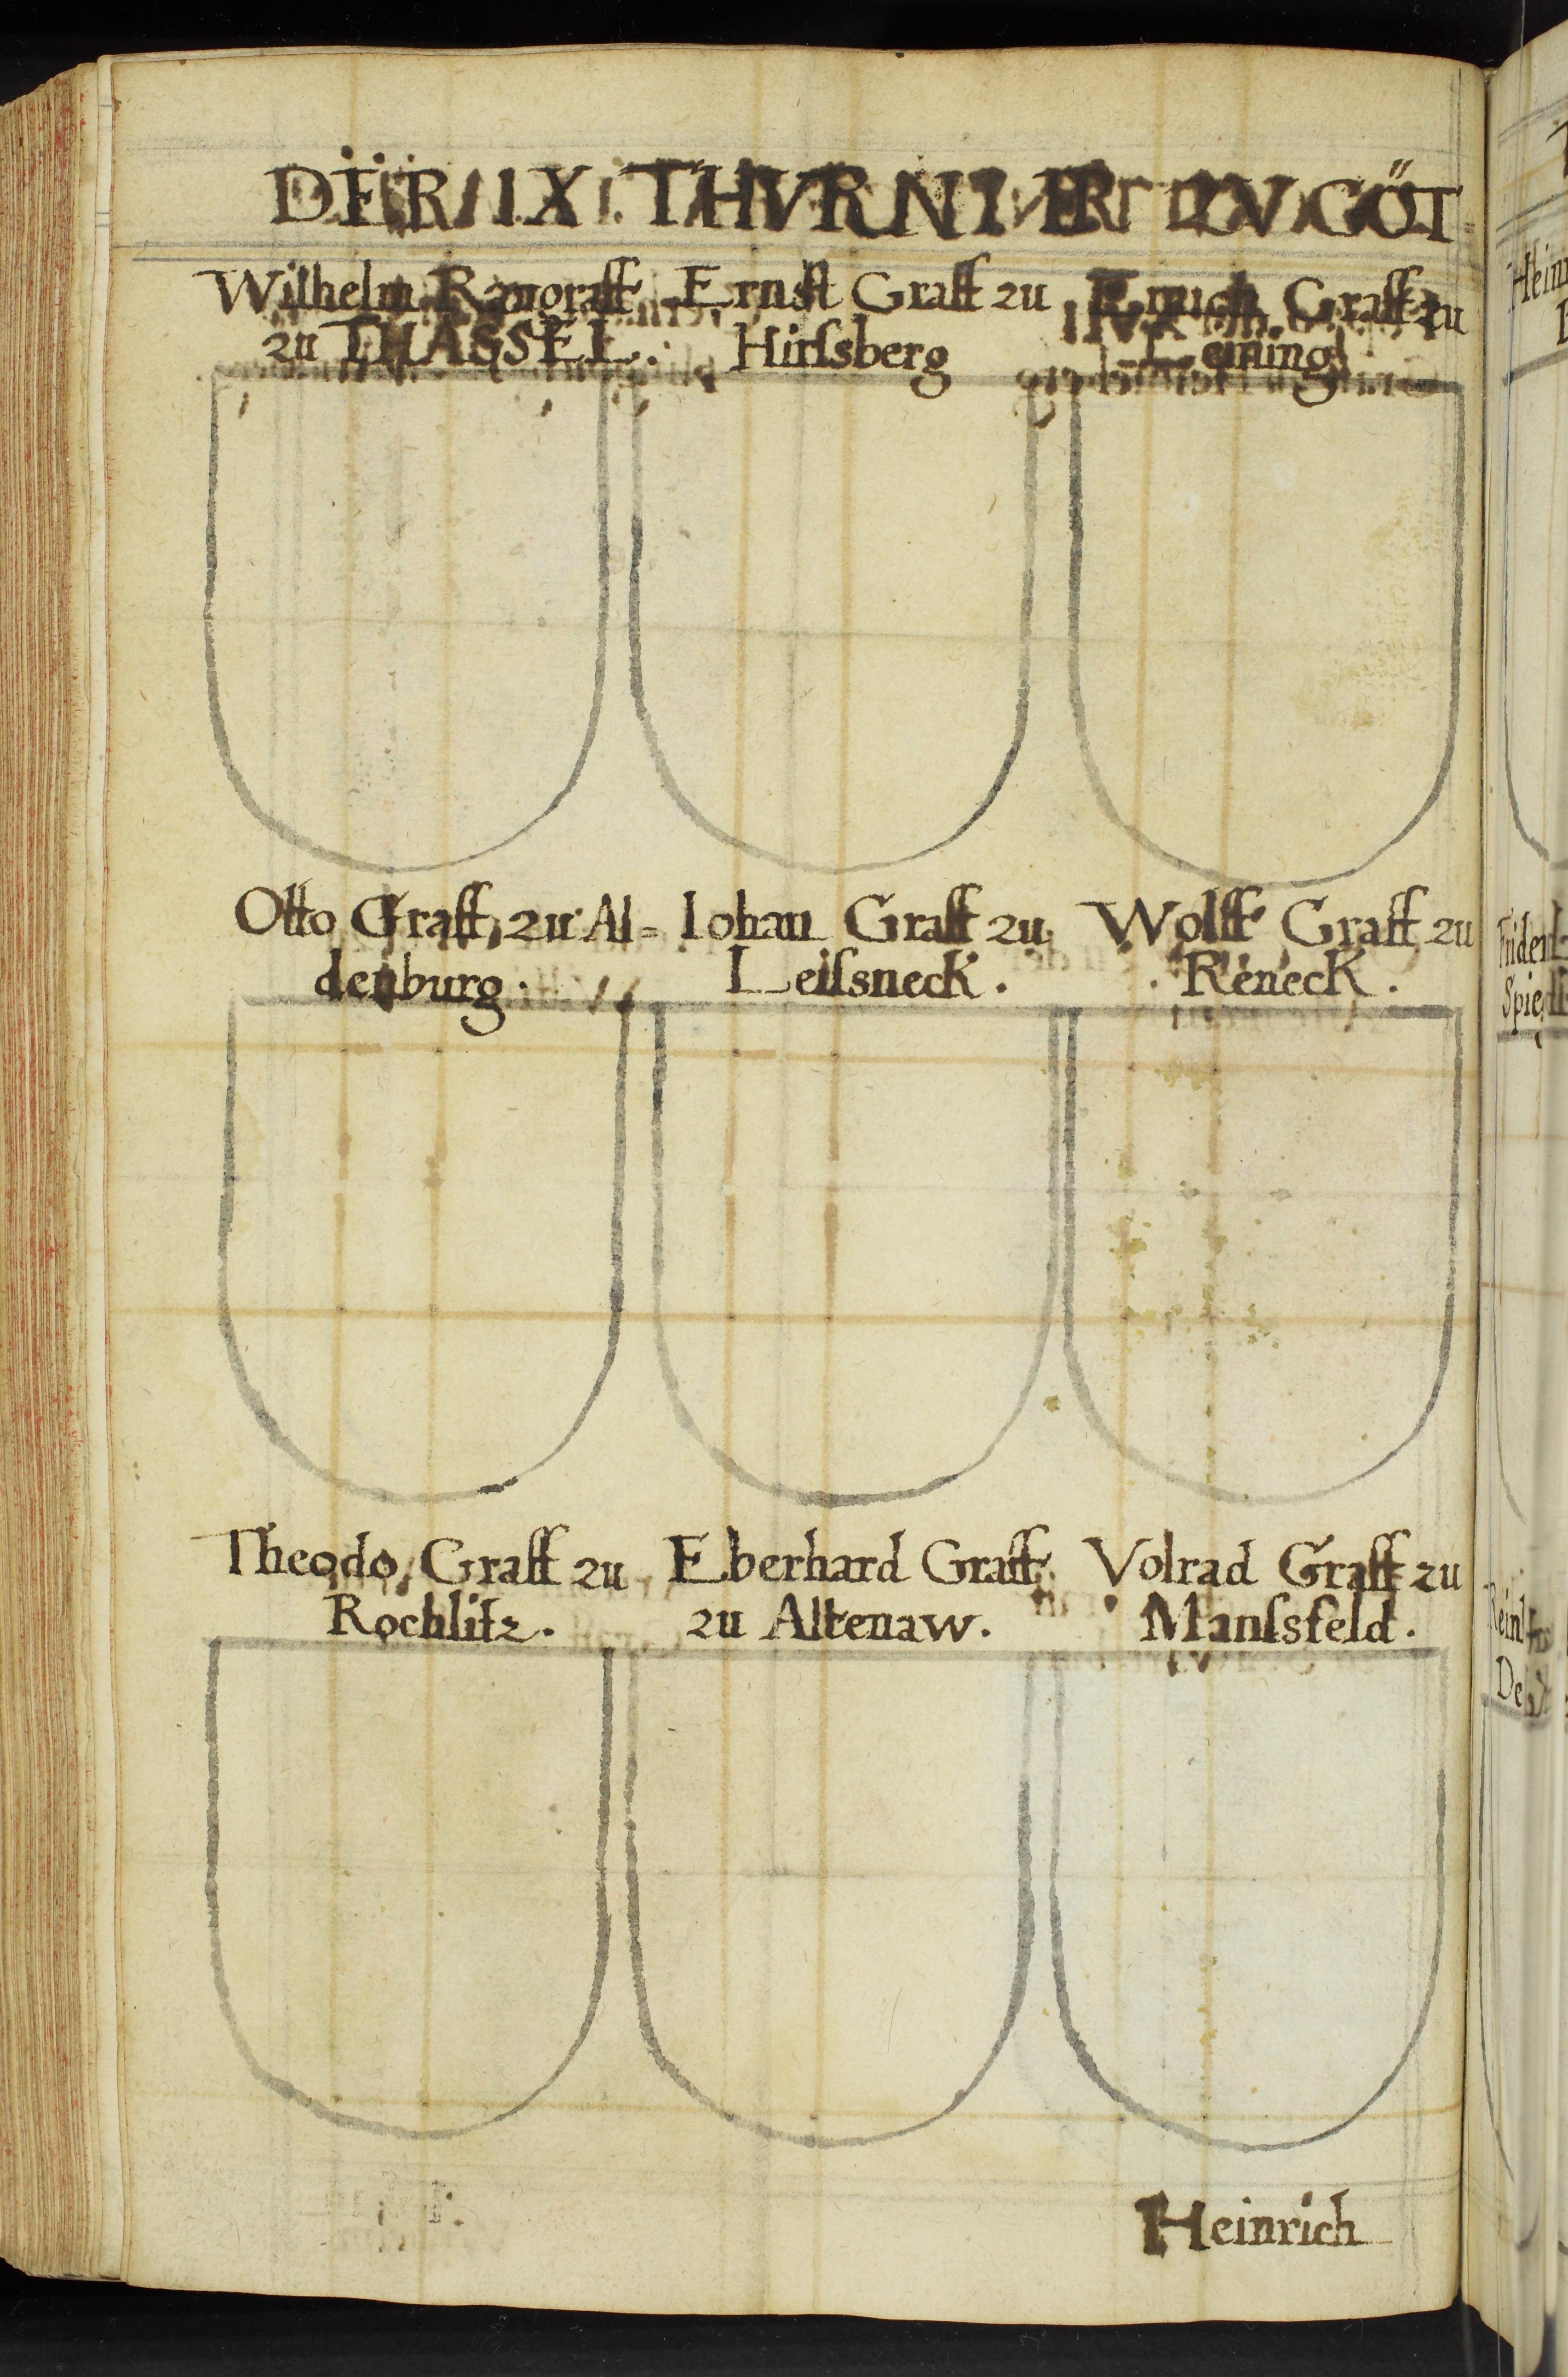 DER IX THVRNIER ZV GÖT=
Wilhelm Raugraff
zu THASSEL.
Ernst Graff zu
Hirſsberg
Emich Graff zu
Leining
Otto Graff zu Al=
denburg.
Iohan Graff zu
Leiſsneck.
Wolff Graff zu
Reneck.
Theodo Graff zu
Rochlitz.
Eberhard Graff
zu Altenaw.
Volrad Graff zu
Manſsfeld.
Heinrich